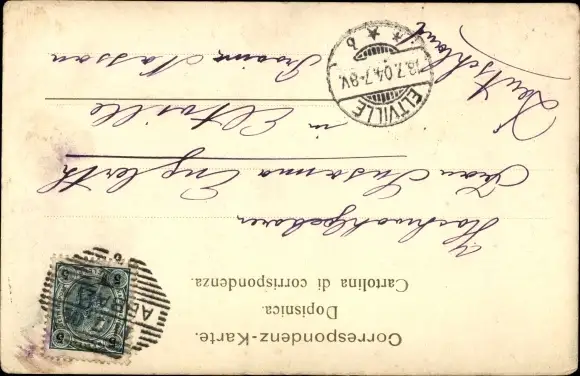 Correspondenz-Karte.
Dopisnica.
Cartolina di corrispondenza.
5 5
5 5
ABBAZIA
Hochwohlgeboren
Frau Susanna Englerth
in Eltville
Provinz Nassau
Deutschland
ELTVILLE
7-8V.